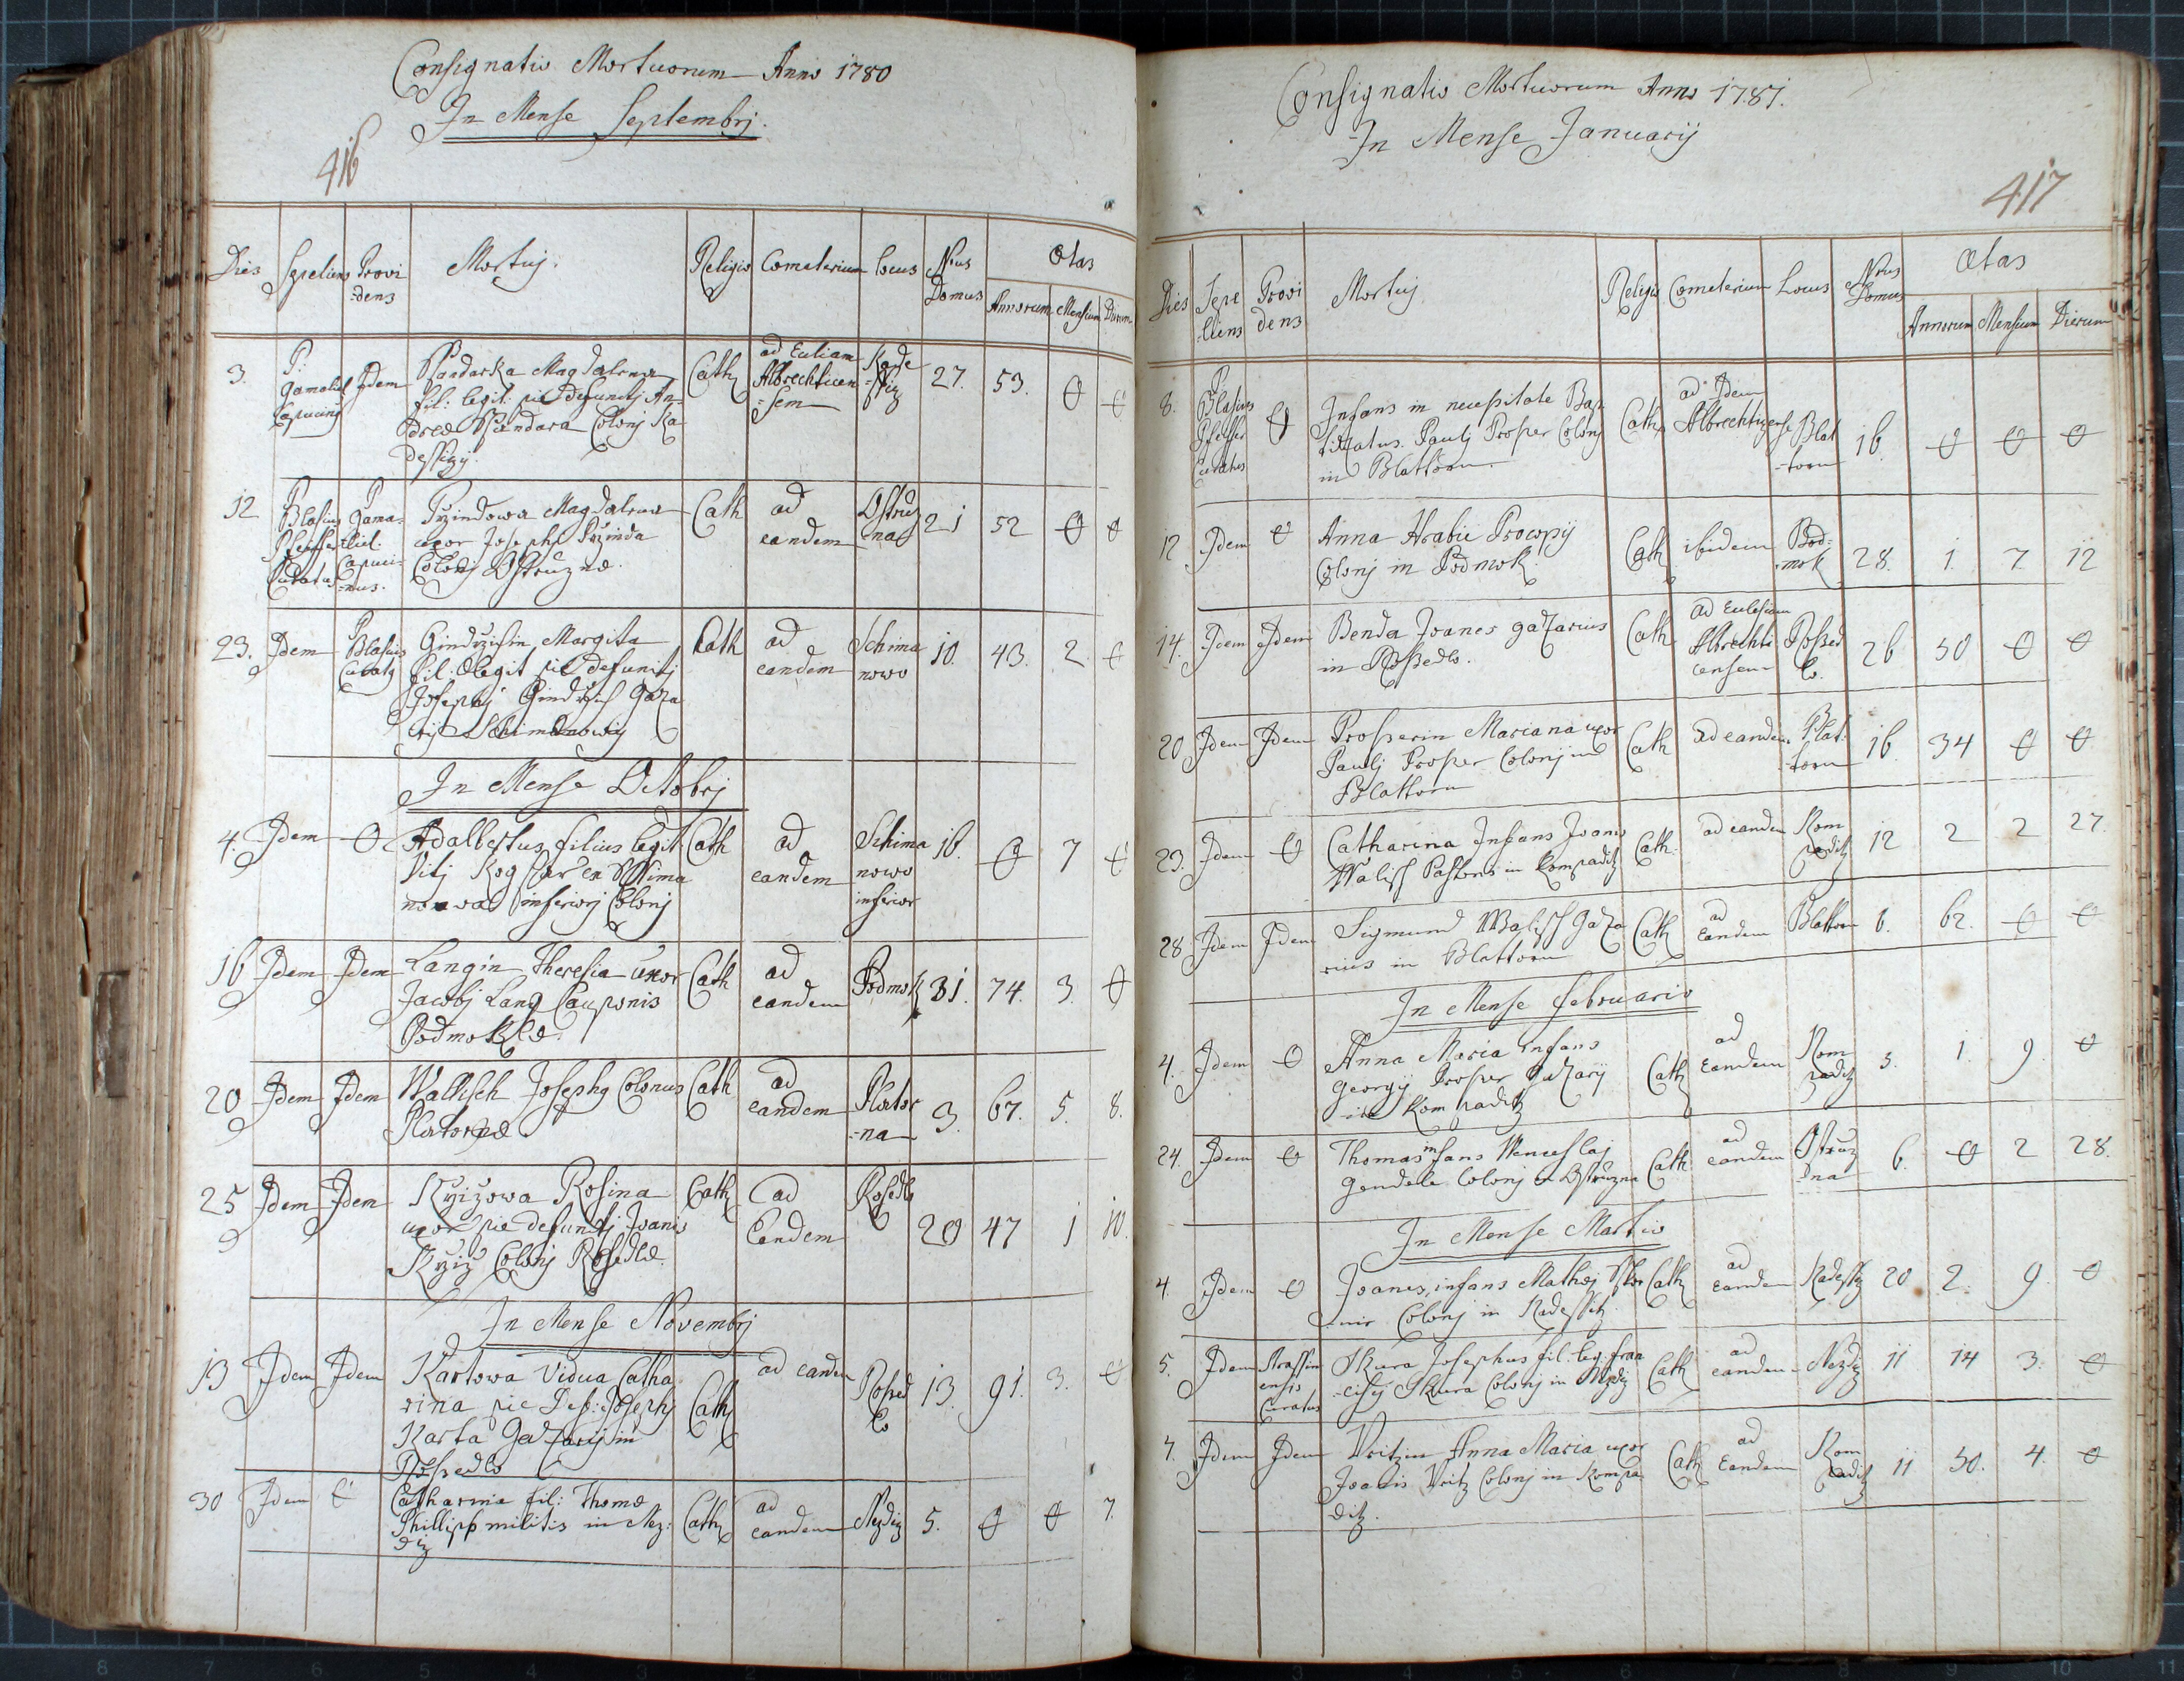 Consignatio Mortuorum Anno 1780
In Mense Septembrj.
416
Dies Sepeliens Provi Mortuj. Religio Cometerium Locus Nrus Ætas
-dens Domus Annorum Mensium Dierum
3. P. Gamaliel Capucinus Idem
Magdalena
fil: legit: pie defunctj An-
dreæ Colonj Ra-
deßizij.
Cath
ad Eccliam
Albrechticen
-sem
Rade
-ßiz
27. 53. 0 0
12 P Blasius Pfeiffer Curatus
P Gama-
liel
Capuci-
nus.
Przindowa Magdalena
uxor Josephi Przinda
Colonj Ostruznæ.
Cath
ad
eandem
Ostruz
na
21 52 0 0
23. Idem
P Blasius
Curatus
Gindrzisin Margita
fil: legit pie defunctj
Josephj Gindrzich Gaza
rij Schimanowij
Cath
ad
eandem
Schima
nowo
10. 43. 2. 0
In Mense Octobrj
4. Idem 0
Adalbertus filius legit
Vitj ex Schima
nowa inferiorj Colonj
Cath
ad
eandem
Schima
nowo
inferior
16. 0 7 0
16 Idem Idem
Langin Theresia uxor
Jacobj Lang Cauponis
Podmoklæ.
Cath
ad
eandem
Podmok
31. 74. 3. 0
20 Idem Idem
Wallisch Josephus Colonus
Platornæ
Cath
ad
eandem
Plator
-na
3. 67. 5. 8.
25 Idem Idem
Krzizowa Rosina
uxor pie defunctj Joanis
Krziz Colonj Rosedlæ.
Cath
ad
Eandem
Rosedl
20 47 1 10.
In Mense Novembrj
13 Idem Idem
Kartowa Vidua Catha
rina pie Def: Josephj
Karta Gazarij in
Roßedlo
Cath
ad eandem
Roßed
lo
13. 91. 3. 0
30 Idem 0
Catharina fil: Thomæ
Phillipp militis in Nez:
diz
Cath
ad
eandem
Nezdiz
5. 0 0 7.
Consignatio Mortuorum Anno 1781.
In Mense Januarij
417
Dies Sepe Provi Mortuj Religio Cometerium Locus Nrus Ætas
-liens dens Domus Annorum Mensium Dierum
8. P Blasius
Pfeiffer
Curatus
0
Infans in necessitate Bap
tizatus. Paulj Proser Colonj
in Blattorn.
Cath
ad Idem
Albrechtizense
Blat
-torn
16. 0 0 0
12 Idem 0
Anna Hrabie Procopij
Colonj in Podmok
Cath ibidem
Pod-
mok
28. 1. 7. 12
14. Idem Idem
Benda Joanes gazarius
in Roßedlo.
Cath
ad Eclesiam
Albrechti
censem
Roßed
lo.
26 50 0 0
20 Idem Idem
Proserin Mariana uxor
Paulj Proser Colonj in
Blattorn
Cath
ad eandem
Blat
-torn
16. 34 0 0
23. Idem 0
Catharina Infans Joanis
Walisch Pastoris in Komparditz
Cath.
ad eandem
Kom
parditz
12 2 2 27.
28. Idem Idem
Sigmund Walisch Gaza
rius in Blattorn
Cath
ad
Eandem
Blattorn
6. 62. 0 0
In Mense Februario
4. Idem 0
Anna Maria infans
Georgij Proser Gazarij
in Komparditz
Cath
ad
Eandem
Kom
parditz
5. 1. 9. 0
24. Idem 0
Thomas infans Wenceslaj
Gendele Colonj in Ostruzna
Cath
ad
eandem
Ostruz
-na
6. 0 2 28.
In Mense Martio
4. Idem 0
Joanes, infans Mathæj
Colonj in Radeßitz
Cath
ad
Eandem
Radeßitz
20 2. 9. 0
5. Idem
Strassin
ensis
Curatus
Skura Josephus fil. leg. fran
-ciscj Skura Colonj in Nezdiz
Cath
ad
eandem
Nezdiz
11 14 3. 0
7. Idem Idem
Voitzin Anna Maria uxor
Joanis Voitz Colonj in Kompar
ditz.
Cath
ad
Eandem
Kom
parditz
11 50. 4. 0